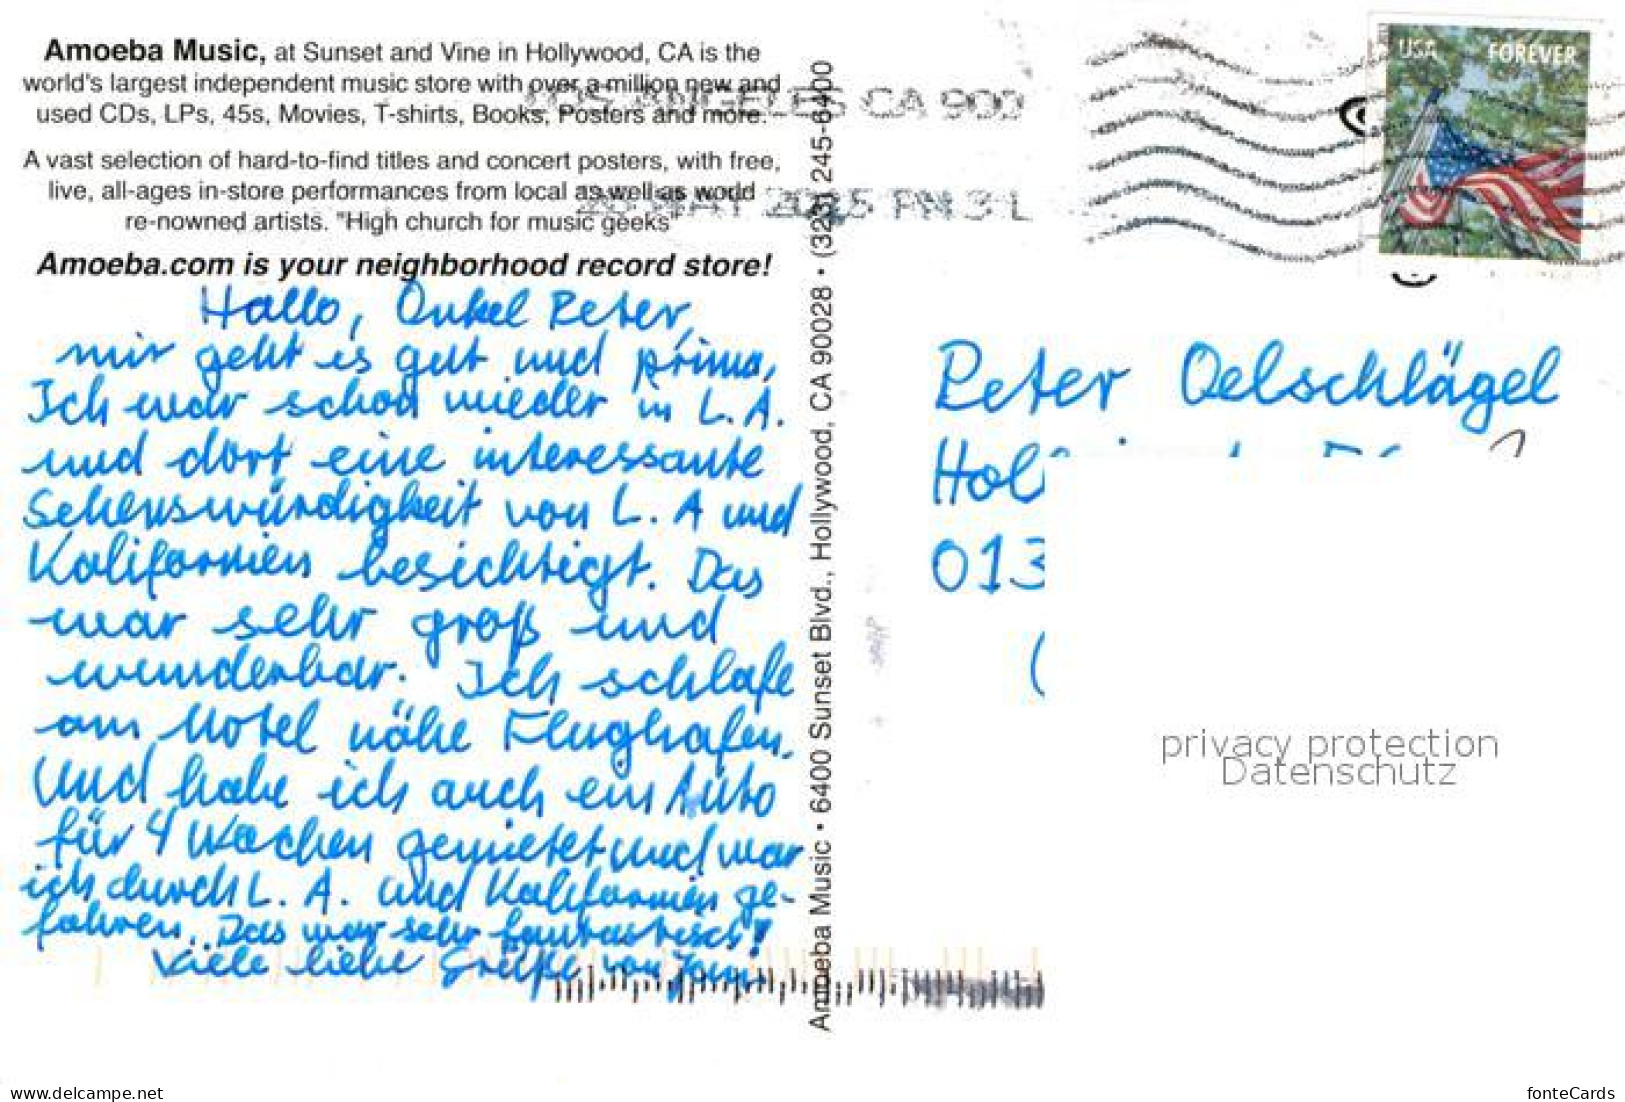 Amoeba Music, at Sunset and Vine in Hollywood, CA is the
world's largest independent music store with over a million new and
used CDs, LPs, 45s, Movies, T-shirts, Books, Posters and more.
A vast selection of hard-to-find titles and concert posters, with free,
live, all-ages in-store performances from local as well as world
re-nowned artists. "High church for music geeks"
Amoeba.com is your neighborhood record store!
Hallo, Onkel Peter,
mir geht es gut und prima,
Ich war schon wieder in L.A.
und dort eine interessante
Sehenswürdigkeit von L.A und
Kalifornien besichtigt. Das
war sehr groß und
wunderbar. Ich schlafe
am Motel nähe Flughafen.
Und habe ich auch ein Auto
für 4 Wochen gemietet und war
ich durch L.A. und Kalifornien ge-
fahren. Das war sehr fantastisch!
Viele liebe Grüße von
Amoeba Music • 6400 Sunset Blvd., Hollywood, CA 90028 • (323) 245-6400
LOS ANGELES CA 900
MAY 2015 PM 3 L
USA FOREVER
Peter Oelschlägel
013
privacy protection
Datenschutz
www.delcampe.net
fonteCards